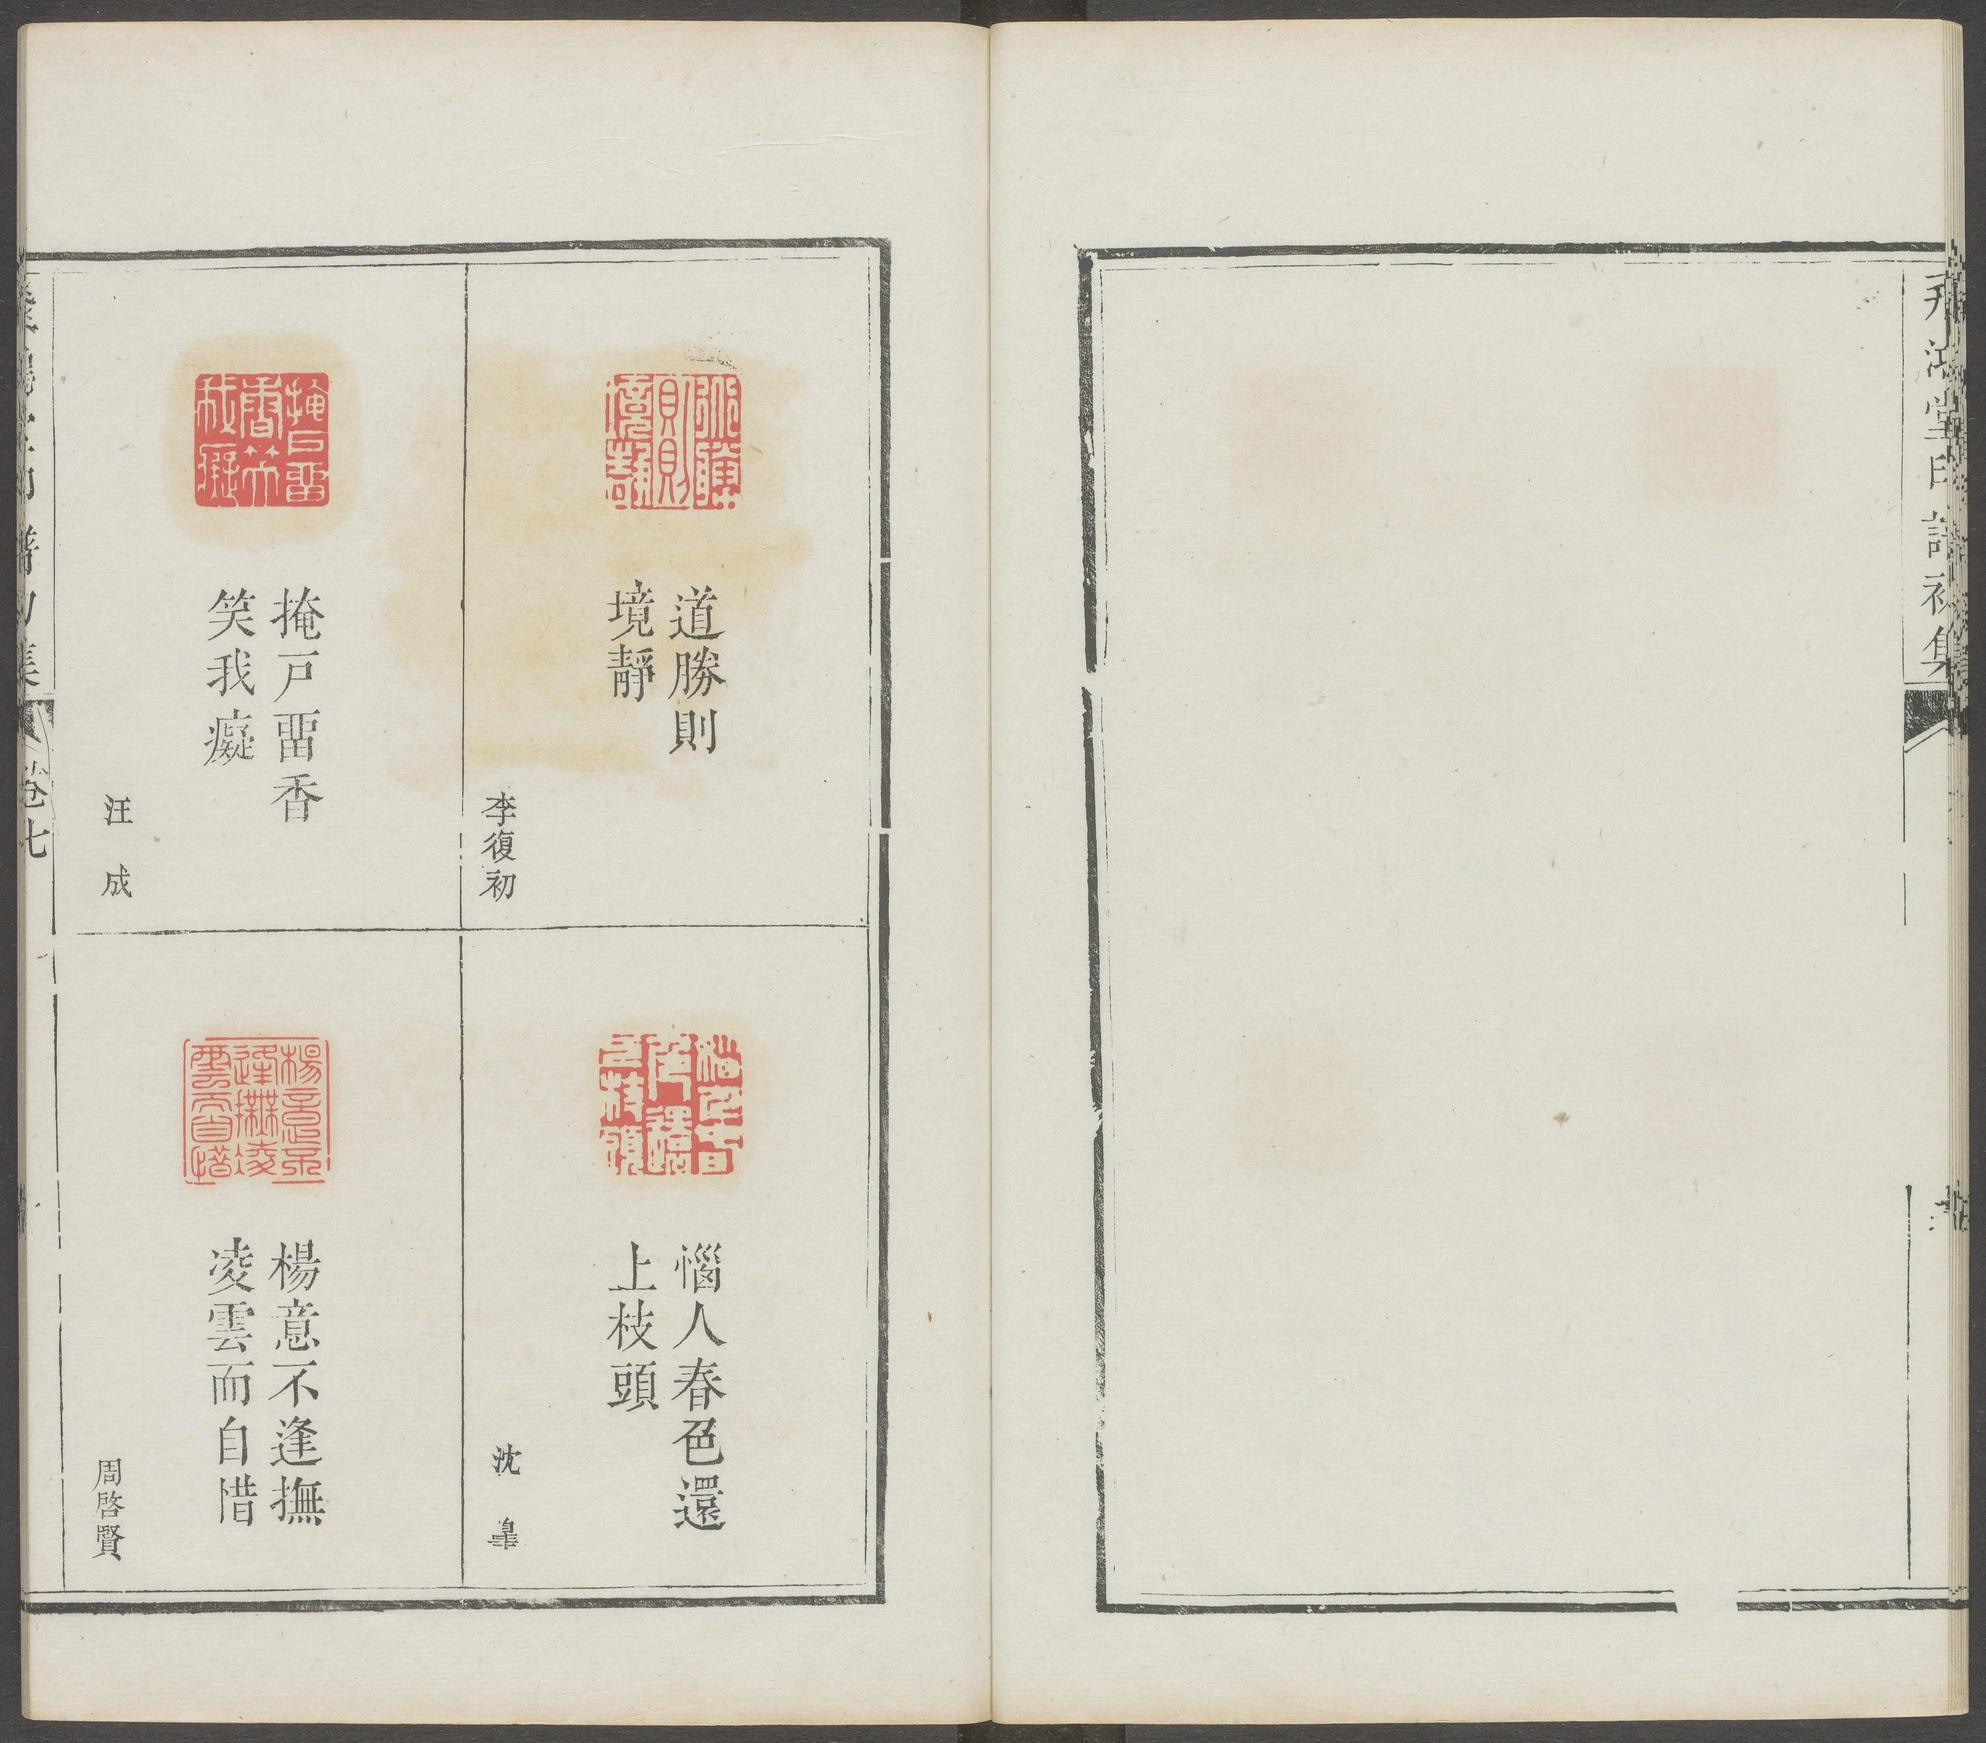 飛鴻堂印譜初集
道勝則
境靜
李復初
惱人春色還
上枝頭
沈皐
掩戸畱香
笑我癡
汪成
楊意不逢撫
凌雲而自惜
周啓賢
飛鴻堂印譜初集
卷七